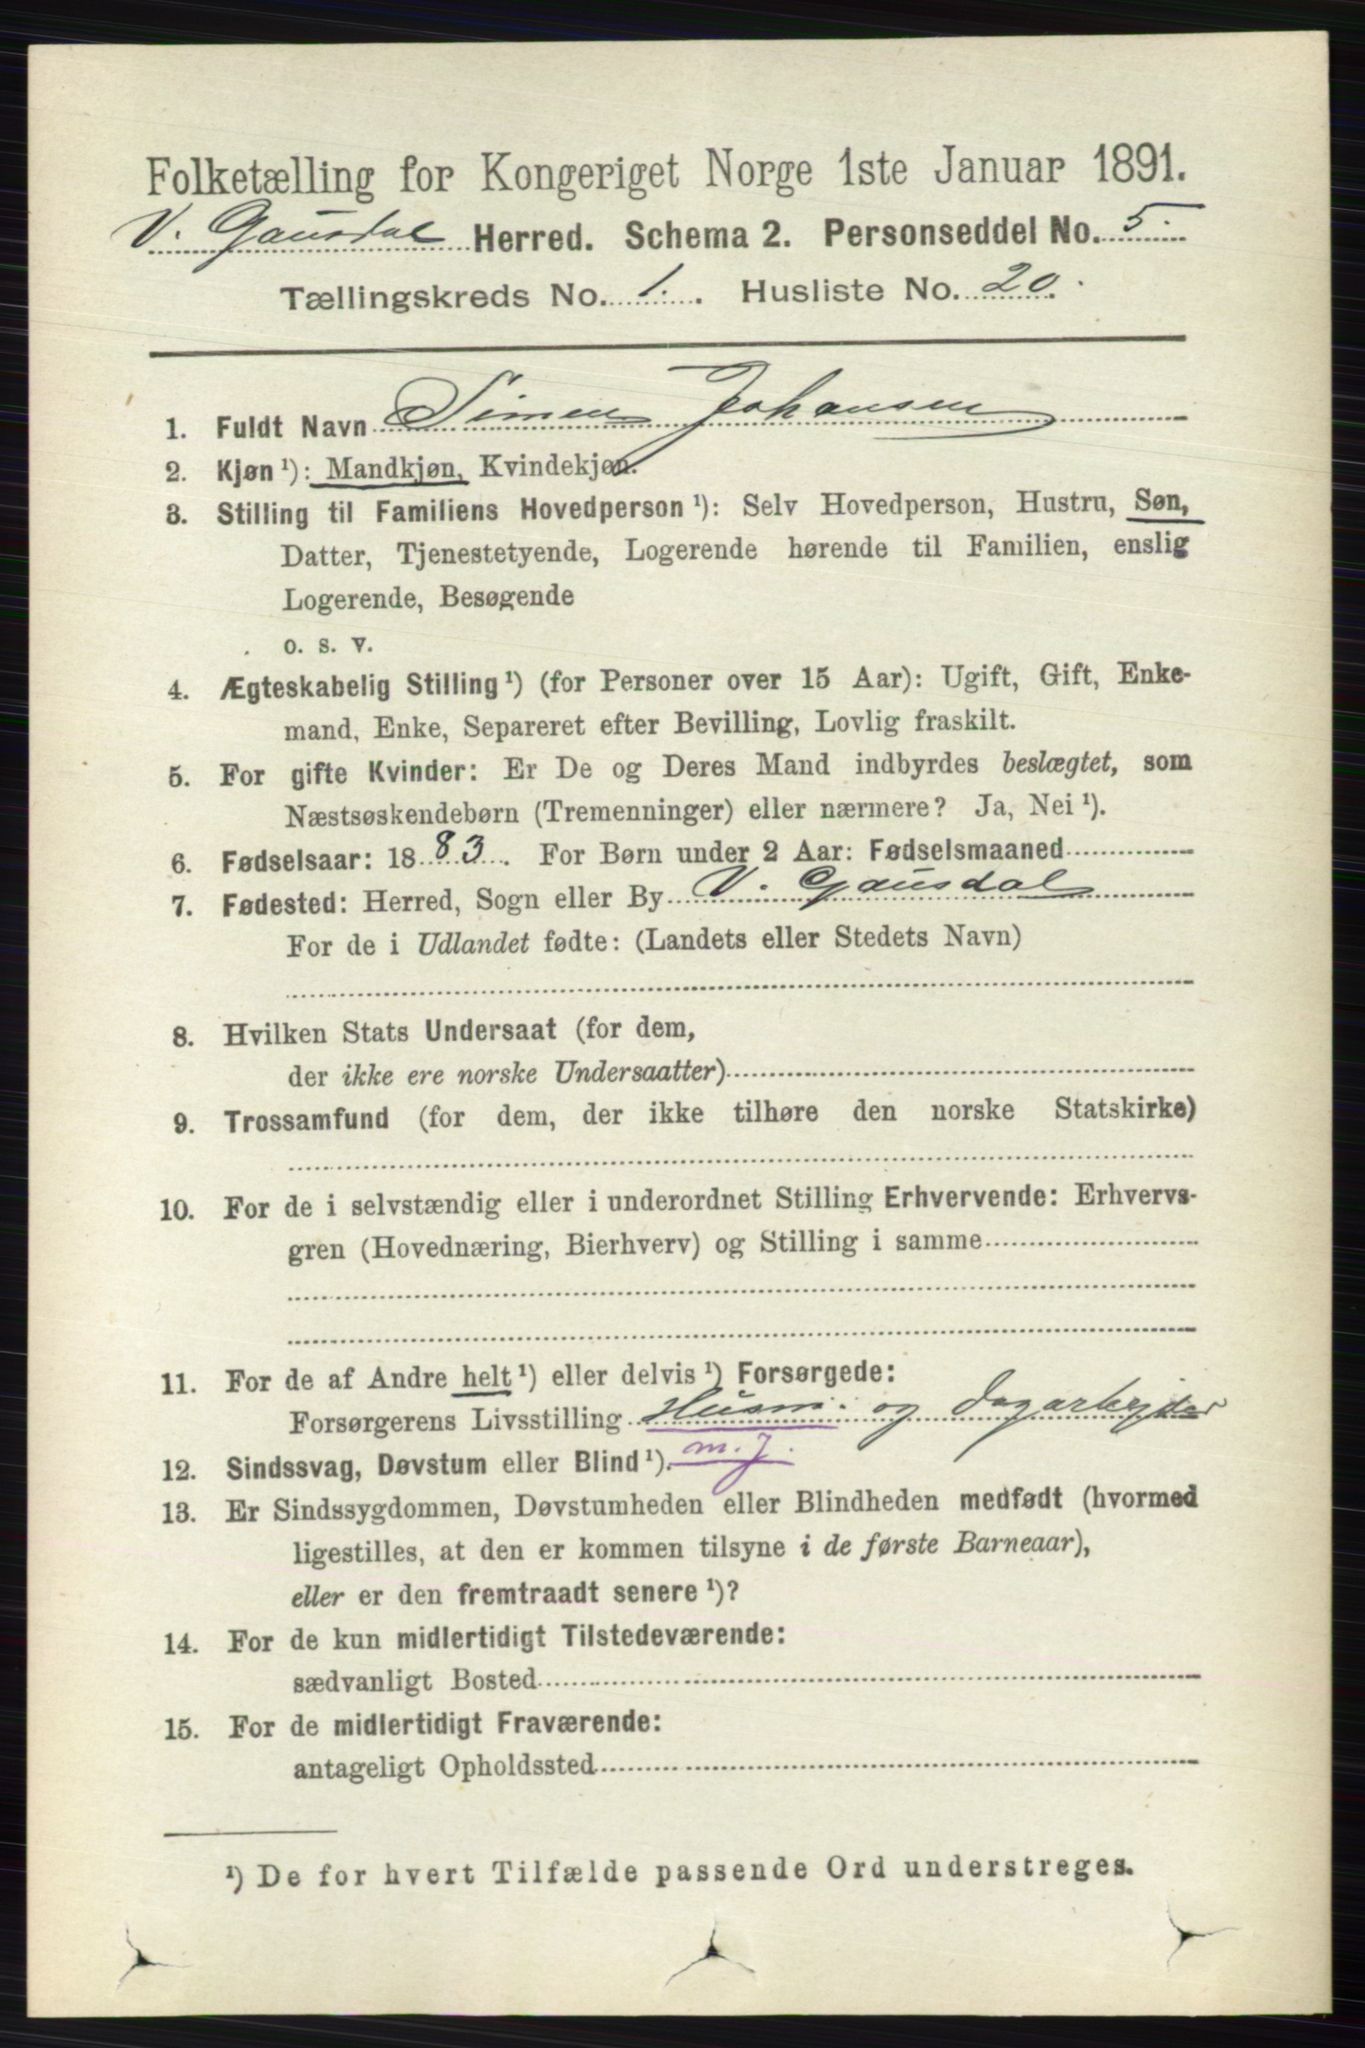 Folketælling for Kongeriget Norge 1ste Januar 1891.
V. Gausdal Herred. Schema 2. Personseddel No. 5.
Tællingskreds No. 1. Husliste No. 20.
1. Fuldt Navn Simen Johansen
2. Kjøn ¹): Mandkjøn, Kvindekjøn.
3. Stilling til Familiens Hovedperson ¹): Selv Hovedperson, Hustru, Søn,
Datter, Tjenestetyende, Logerende hørende til Familien, enslig
Logerende, Besøgende
o. s. v.
4. Ægteskabelig Stilling ¹) (for Personer over 15 Aar): Ugift, Gift, Enke-
mand, Enke, Separeret efter Bevilling, Lovlig fraskilt.
5. For gifte Kvinder: Er De og Deres Mand indbyrdes beslægtet, som
Næstsøskendebørn (Tremenninger) eller nærmere? Ja, Nei ¹).
6. Fødselsaar: 1883. For Børn under 2 Aar: Fødselsmaaned
7. Fødested: Herred, Sogn eller By V. Gausdal
For de i Udlandet fødte: (Landets eller Stedets Navn)
8. Hvilken Stats Undersaat (for dem,
der ikke ere norske Undersaatter)
9. Trossamfund (for dem, der ikke tilhøre den norske Statskirke)
10. For de i selvstændig eller i underordnet Stilling Erhvervende: Erhvervs-
gren (Hovednæring, Bierhverv) og Stilling i samme
11. For de af Andre helt ¹) eller delvis ¹) Forsørgede:
Forsørgerens Livsstilling Husm. og dagarbejder
12. Sindssvag, Døvstum eller Blind ¹). m. J.
13. Er Sindssygdommen, Døvstumheden eller Blindheden medfødt (hvormed
ligestilles, at den er kommen tilsyne i de første Barneaar),
eller er den fremtraadt senere ¹)?
14. For de kun midlertidigt Tilstedeværende:
sædvanligt Bosted
15. For de midlertidigt Fraværende:
antageligt Opholdssted
¹) De for hvert Tilfælde passende Ord understreges.